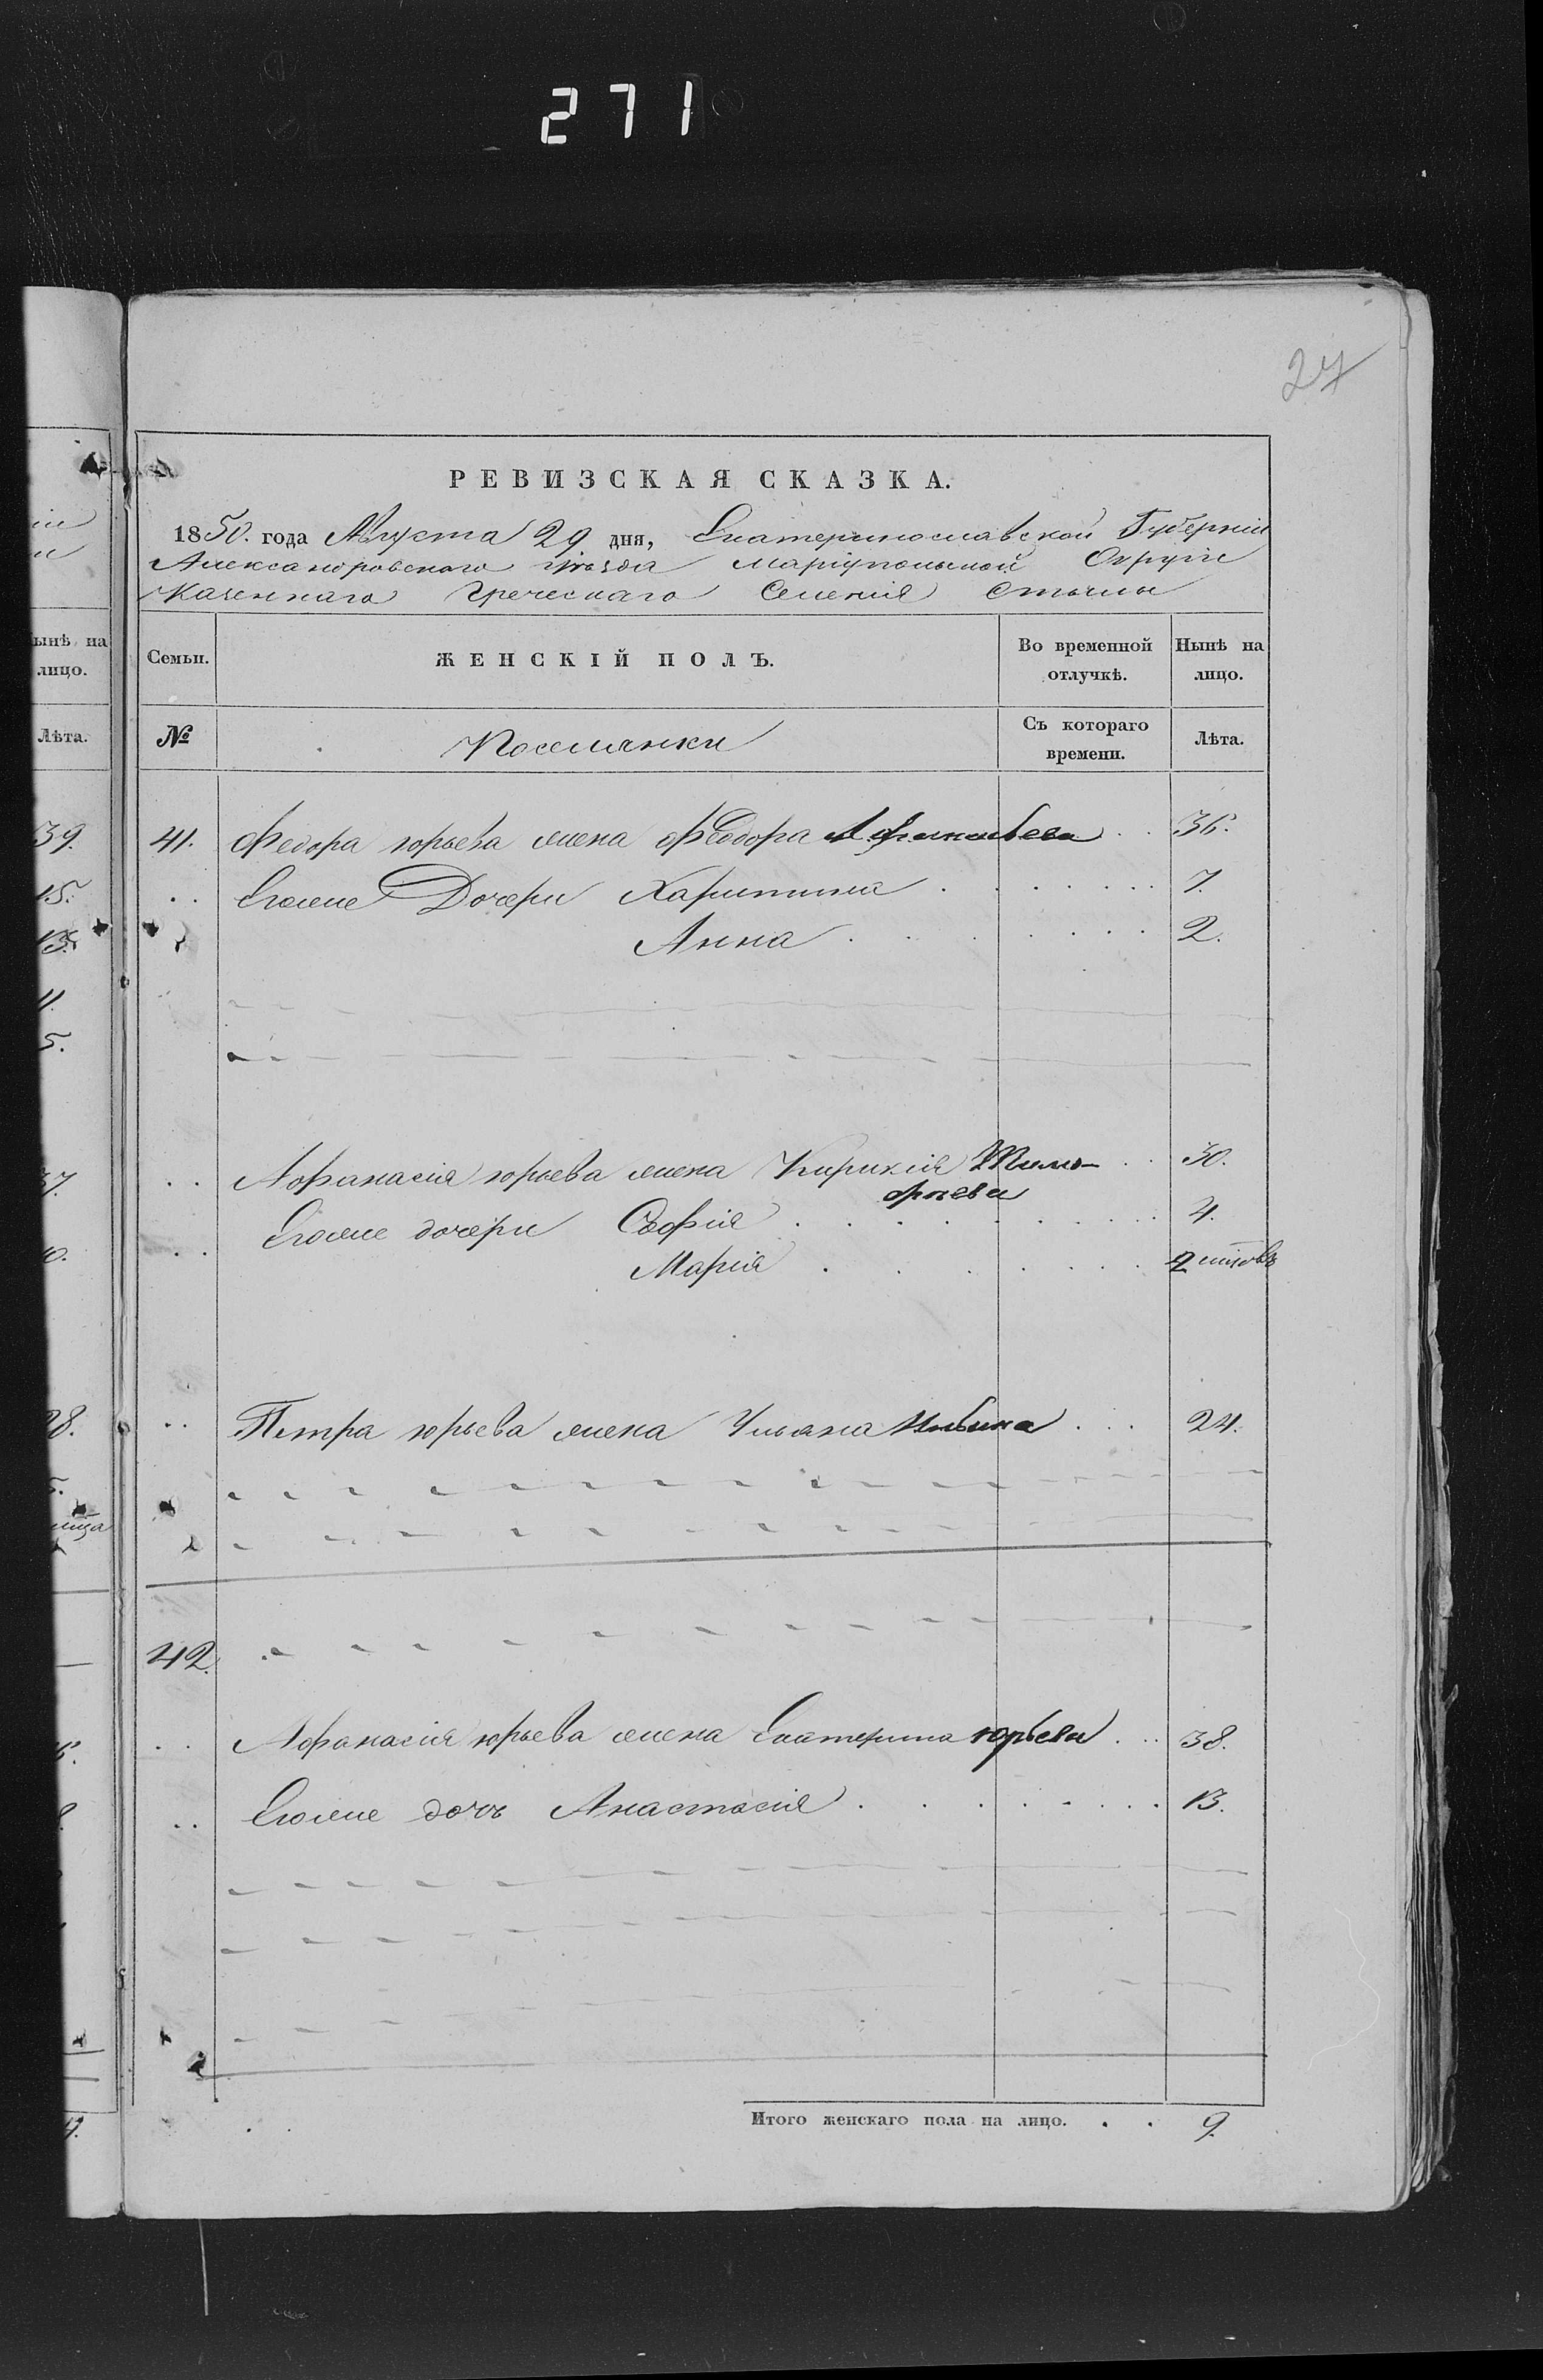 271
27
РЕВИЗСКАЯ СКАЗКА.
1850. года Августа 29 дня, Екатеринославской Губерніи
Александровскаго уѣзда Маріупольской Округи
Казеннаго Греческаго Селенія Стылы
ынѣ на лицо.
Семьи.
ЖЕНСКІЙ ПОЛЪ.
Во временной отлучкѣ.
Нынѣ на лицо.
Лѣта.
№
Поселянки
Съ котораго времени.
Лѣта.
39.
41. Федора юрьева жена Феодора Афанасьева . . 36.
15.
. . Егоже Дочери Харитина . . . . . . . 7.
13.
Анна . . . . . . . 2.
11.
5.
37.
. . Афанасія юрьева жена Кирикія Тимо- . . 30.
фѣева
. . Егоже дочери Софія . . . . . . . 4.
Марія . . . . . . 2 мѣсцовъ
28.
. . Петра юрьева жена Ульяна Ильина . . . 24.
42.
. . Афанасія юрьева жена Екатерина юрьева . . . 38.
. . Егоже дочь Анастасія . . . . . . . 13.
Итого женскаго пола на лицо. . . 9.